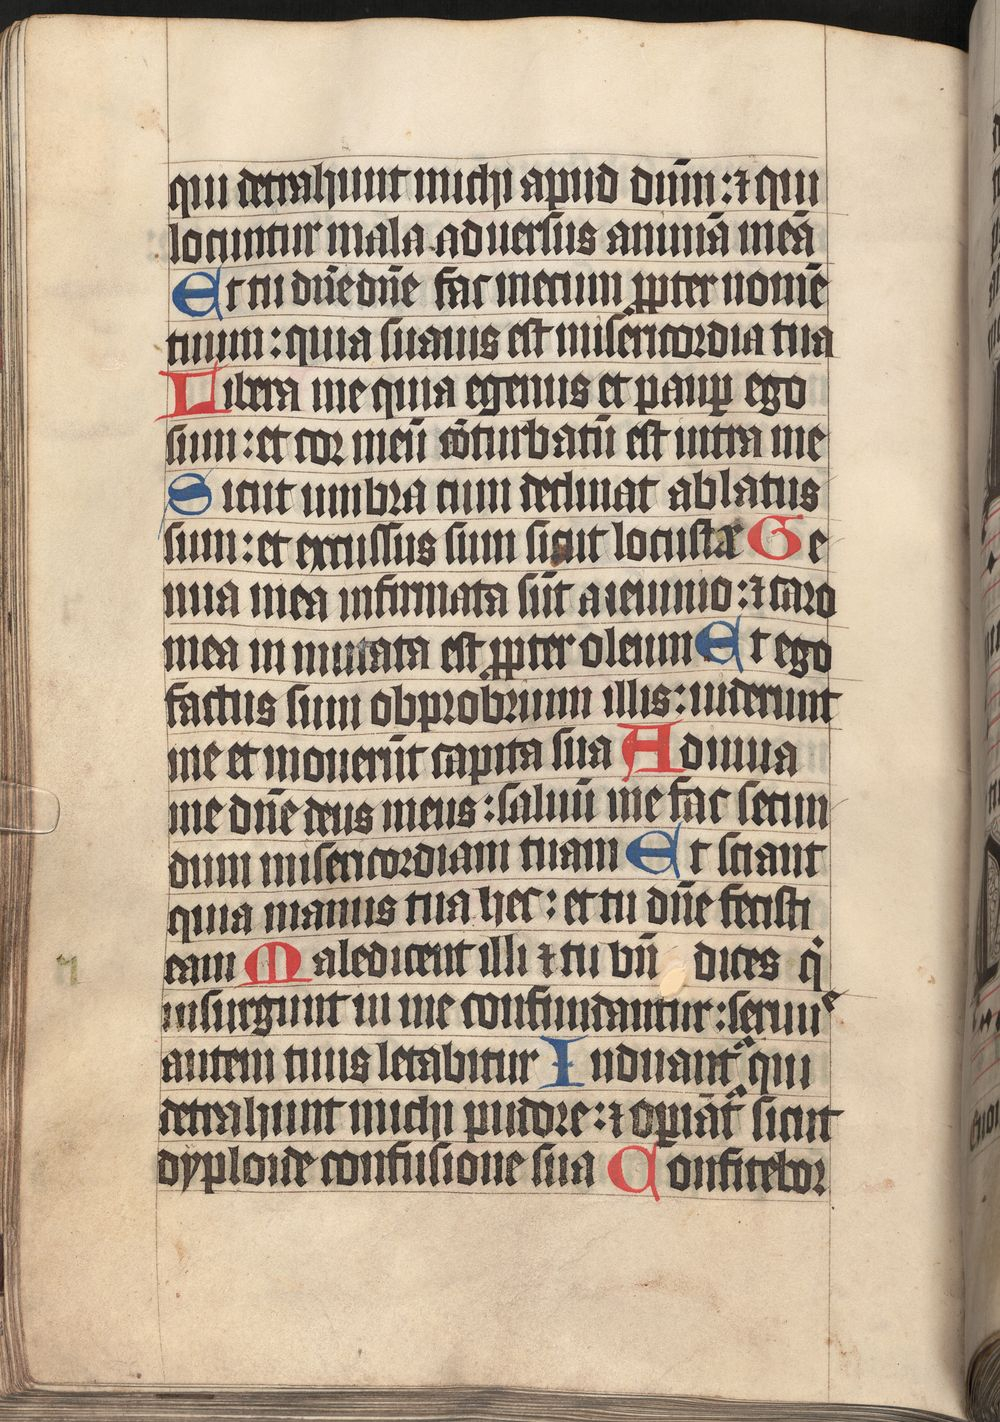 qui detrahunt michi apud dūm: ⁊ qui
locuntur mala aduersus animā meā
Et tu dn̄e dn̄e fac mecum ꝓpter nomē
tuum: quia suauis est misericordia tua
Libera me quia egenus et pauꝑ ego
sum: et cor meū cōturbatū est intra me
Sicut umbra cum declinat ablatus
sum: et excussus sum sicut locuste Ge
nua mea infirmata sūt a ieiunio: ⁊ caro
mea in mutata est ꝓpter oleum Et ego
factus sum obprobrium illis: uiderunt
me et mouerūt capita sua Adiuua
me dn̄e deus meus: saluū me fac secun
dum misericordiam tuam Et sciant
quia manus tua hec: et tu dn̄e fecisti
eam Maledicent illi ⁊ tu bn̄ dices qͥ
insurgunt in me confundantur: seruuˢ
autem tuus letabitur Induantᷣ qui
detrahunt michi pudore: ⁊ oꝑiātᷣ sicut
dyploide confusione sua Confitebor